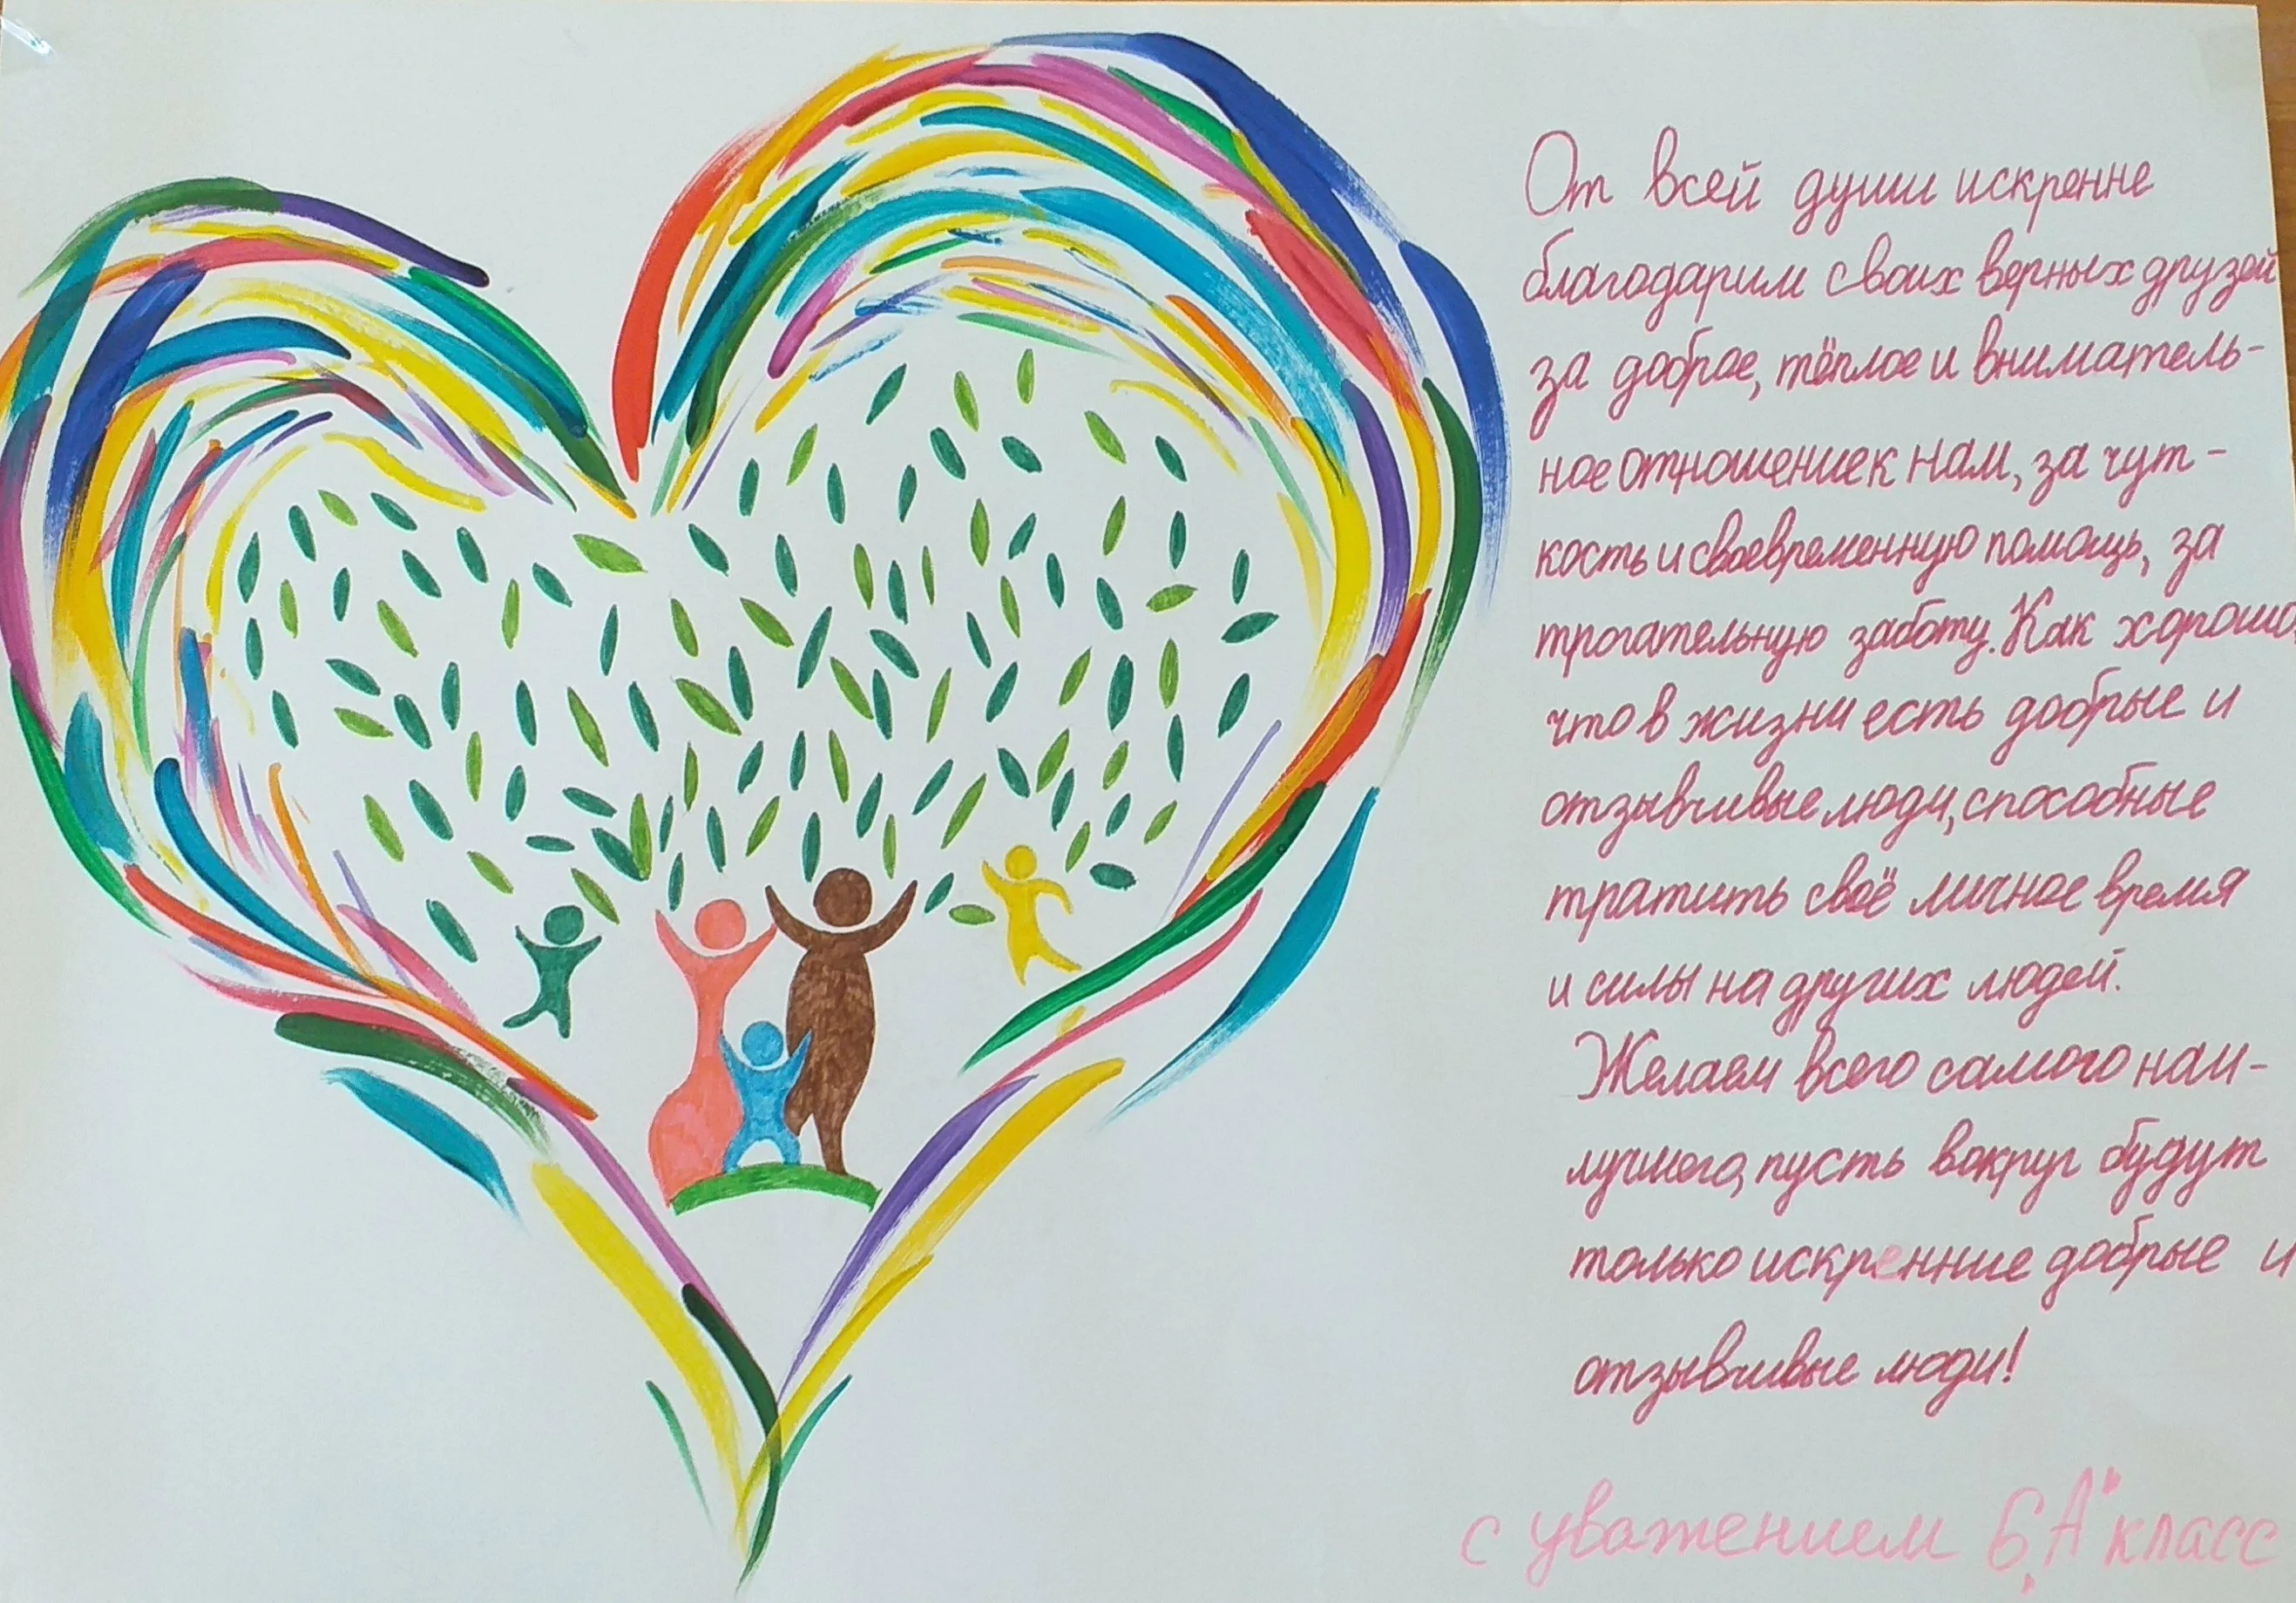 От всей души искренне
благодарим своих верных друзей
за доброе, тёплое и вниматель-
ное отношение к нам, за чут-
кость и своевременную помощь, за
трогательную заботу. Как хорошо,
что в жизни есть добрые и
отзывчивые люди, способные
тратить своё личное время
и силы на других людей.
Желаем всего самого наи-
лучшего, пусть вокруг будут
только искренние добрые и
отзывчивые люди!
с уважением 6 „А" класс